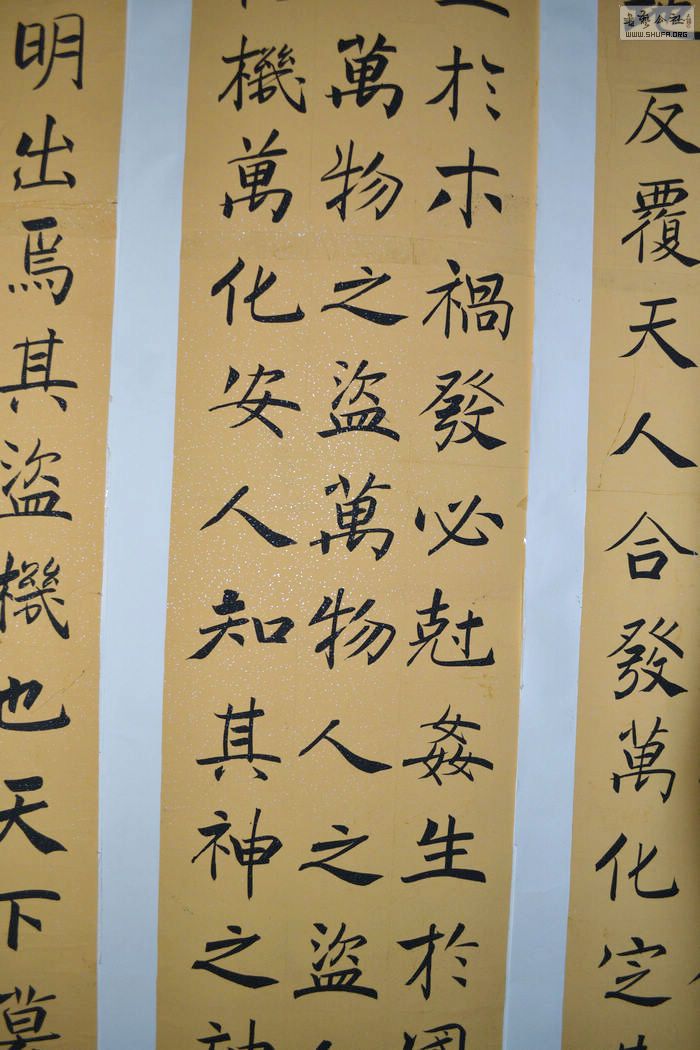 反覆天人合發萬化定
於木禍發必尅姦生於國
萬物之盜萬物人之盜人
機萬化安人知其神之神
明出焉其盜機也天下莫
書藝公社
WWW.SHUFA.ORG